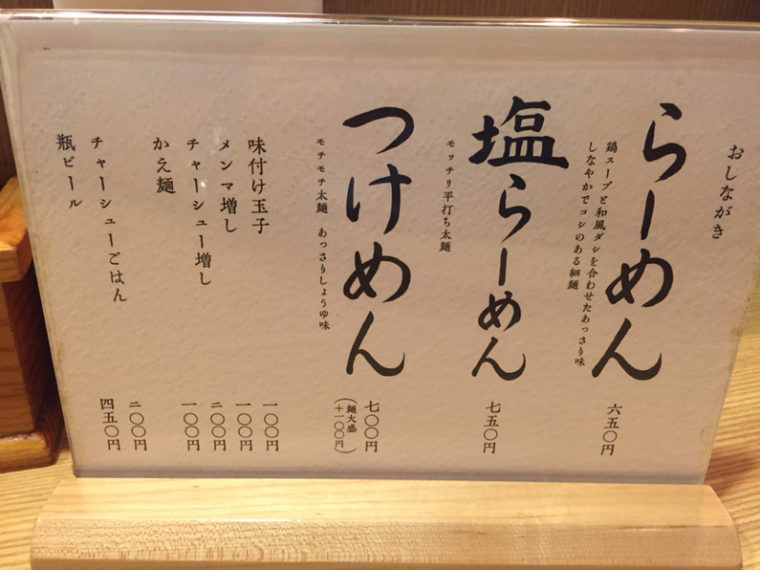 おしながき
らーめん
鶏スープと和風ダシを合わせたあっさり味
しなやかでコシのある細麺
六五〇円
塩らーめん
モッチリ平打ち太麺
七五〇円
つけめん
モチモチ太麺 あっさりしょうゆ味
七〇〇円
(麺大盛
+一〇〇円)
味付け玉子
一〇〇円
メンマ増し
一〇〇円
チャーシュー増し
二〇〇円
かえ麺
一〇〇円
チャーシューごはん
二〇〇円
瓶ビール
四五〇円